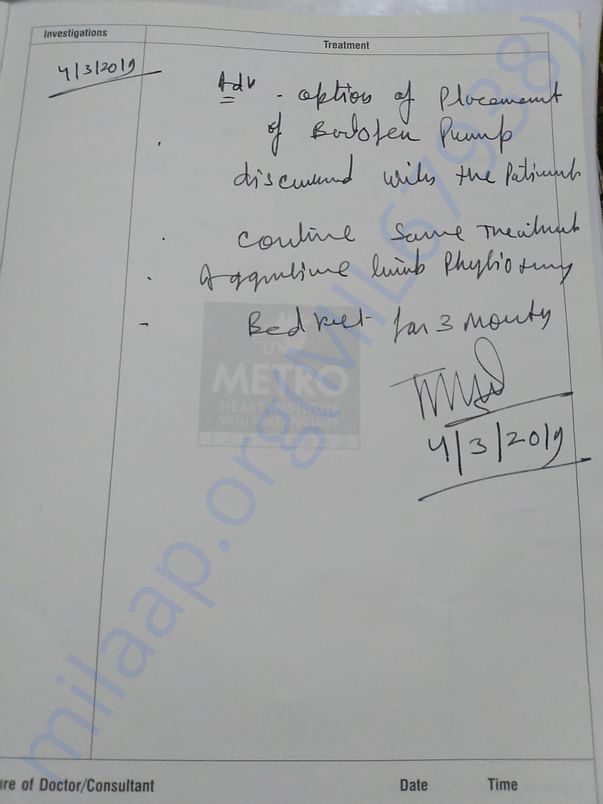 Investigations
Treatment
4/3/2019
Adv - option of Placement
of Baclofen Pump
discussed with the Patients
continue Same Treatment
Aggressive limb Physio
Bed rest for 3 months
4/3/2019
METRO
HEART INSTITUTE
WITH MULTISPECIALTY
FARIDABAD
milaap.org(MIL67938)
re of Doctor/Consultant
Date
Time